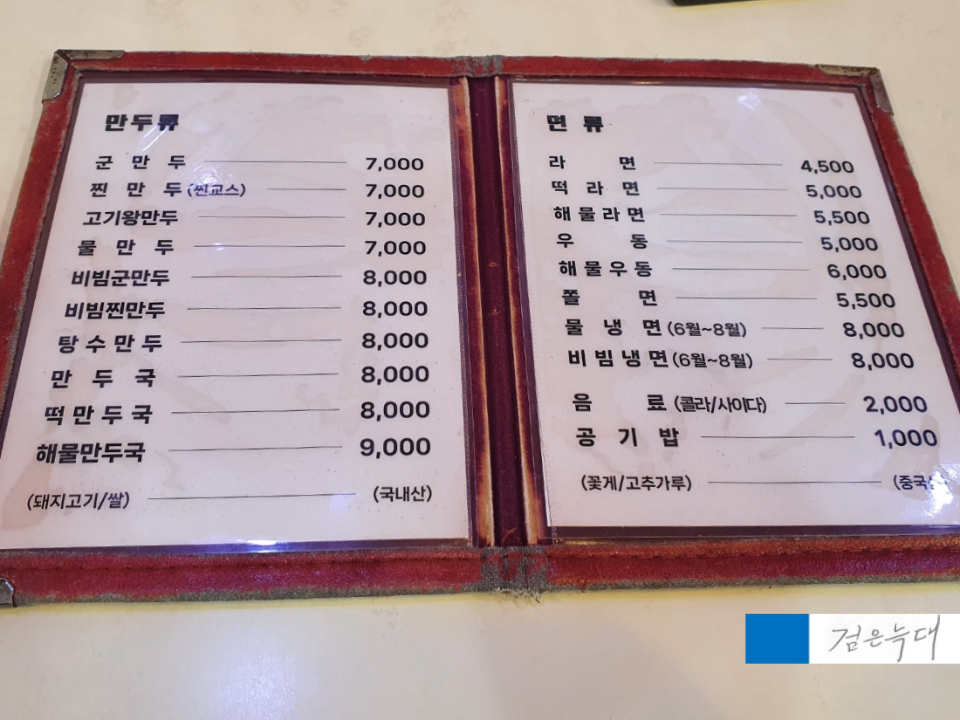 만두류
군 만 두 7,000
찐 만 두 (찐교스) 7,000
고기왕만두 7,000
물 만 두 7,000
비빔군만두 8,000
비빔찐만두 8,000
탕 수 만 두 8,000
만 두 국 8,000
떡 만 두 국 8,000
해물만두국 9,000
(돼지고기/쌀) (국내산)
면 류
라 면 4,500
떡 라 면 5,000
해 물 라 면 5,500
우 동 5,000
해 물 우 동 6,000
쫄 면 5,500
물 냉 면 (6월~8월) 8,000
비 빔 냉 면 (6월~8월) 8,000
음 료 (콜라/사이다) 2,000
공 기 밥 1,000
(꽃게/고추가루)
검은늑대